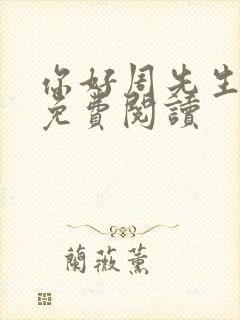 你好周先生
免費閱讀
蘭薇薰